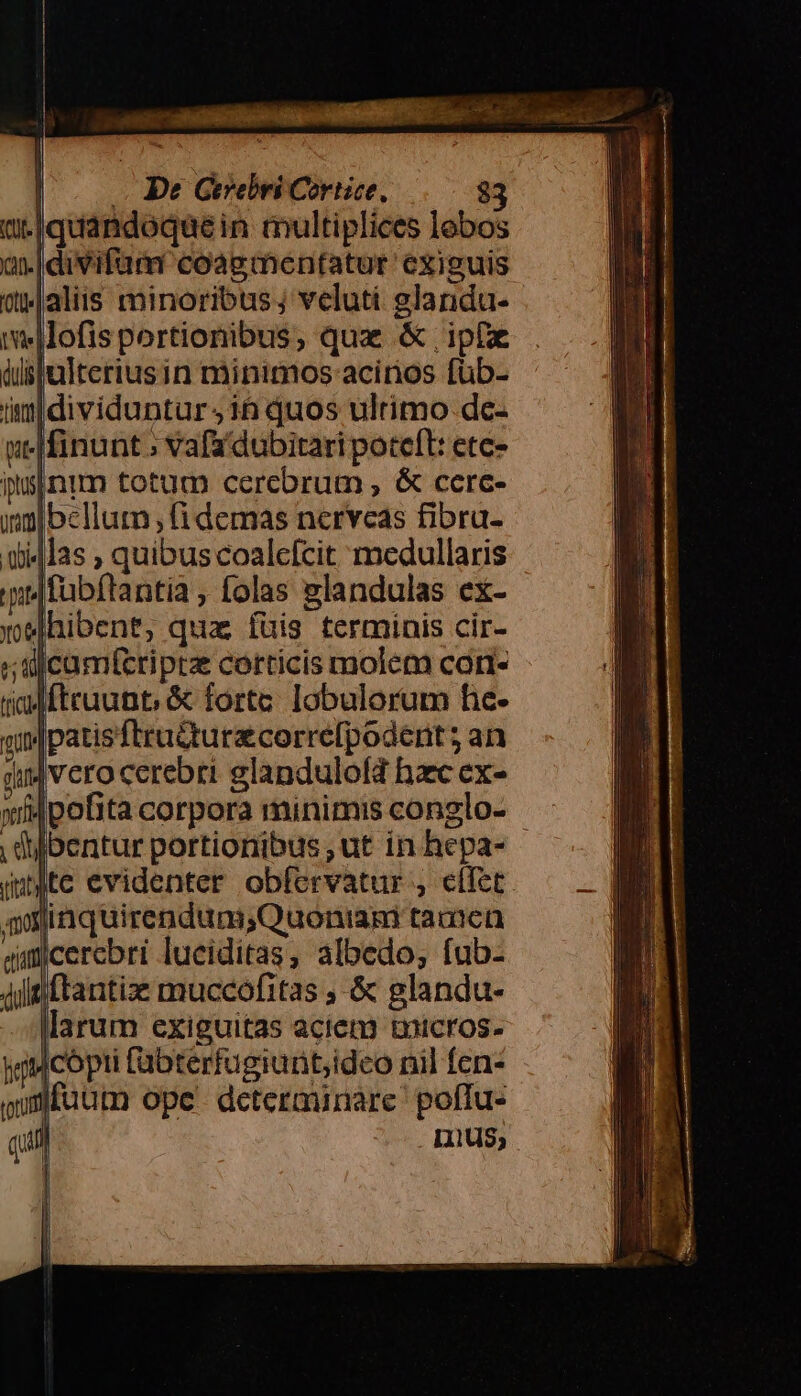 De Cerebri Cortice. 83
quandoque in multiplices lobos
divisum coagmentatur exiguis
aliis minoribus, veluti glandu-
losis portionibus, quæ & ipsæ
ulterius in minimos acinos sub-
dividuntur, in quos ultimo de-
sinunt; vasa dubitari potest: ete-
nim totum cerebrum, & cere-
bellum, si demas nerveas fibru-
las, quibus coalescit medullaris
substantia, solas glandulas ex-
hibent, quæ suis terminis cir-
cumscriptæ corticis molem con-
struunt, & forte lobulorum he-
patis structuræ correspōdent; an
vero cerebri glandulosâ hæc ex-
posita corpora minimis conglo-
bentur portionibus, ut in hepa-
te evidenter observatur, esset
inquirendum; Quoniam tamen
cerebri luciditas, albedo, sub-
stantiæ muccositas, & glandu-
larum exiguitas aciem micros-
copii subterfugiunt, ideo nil sen-
suum ope determinare possu-
mus,